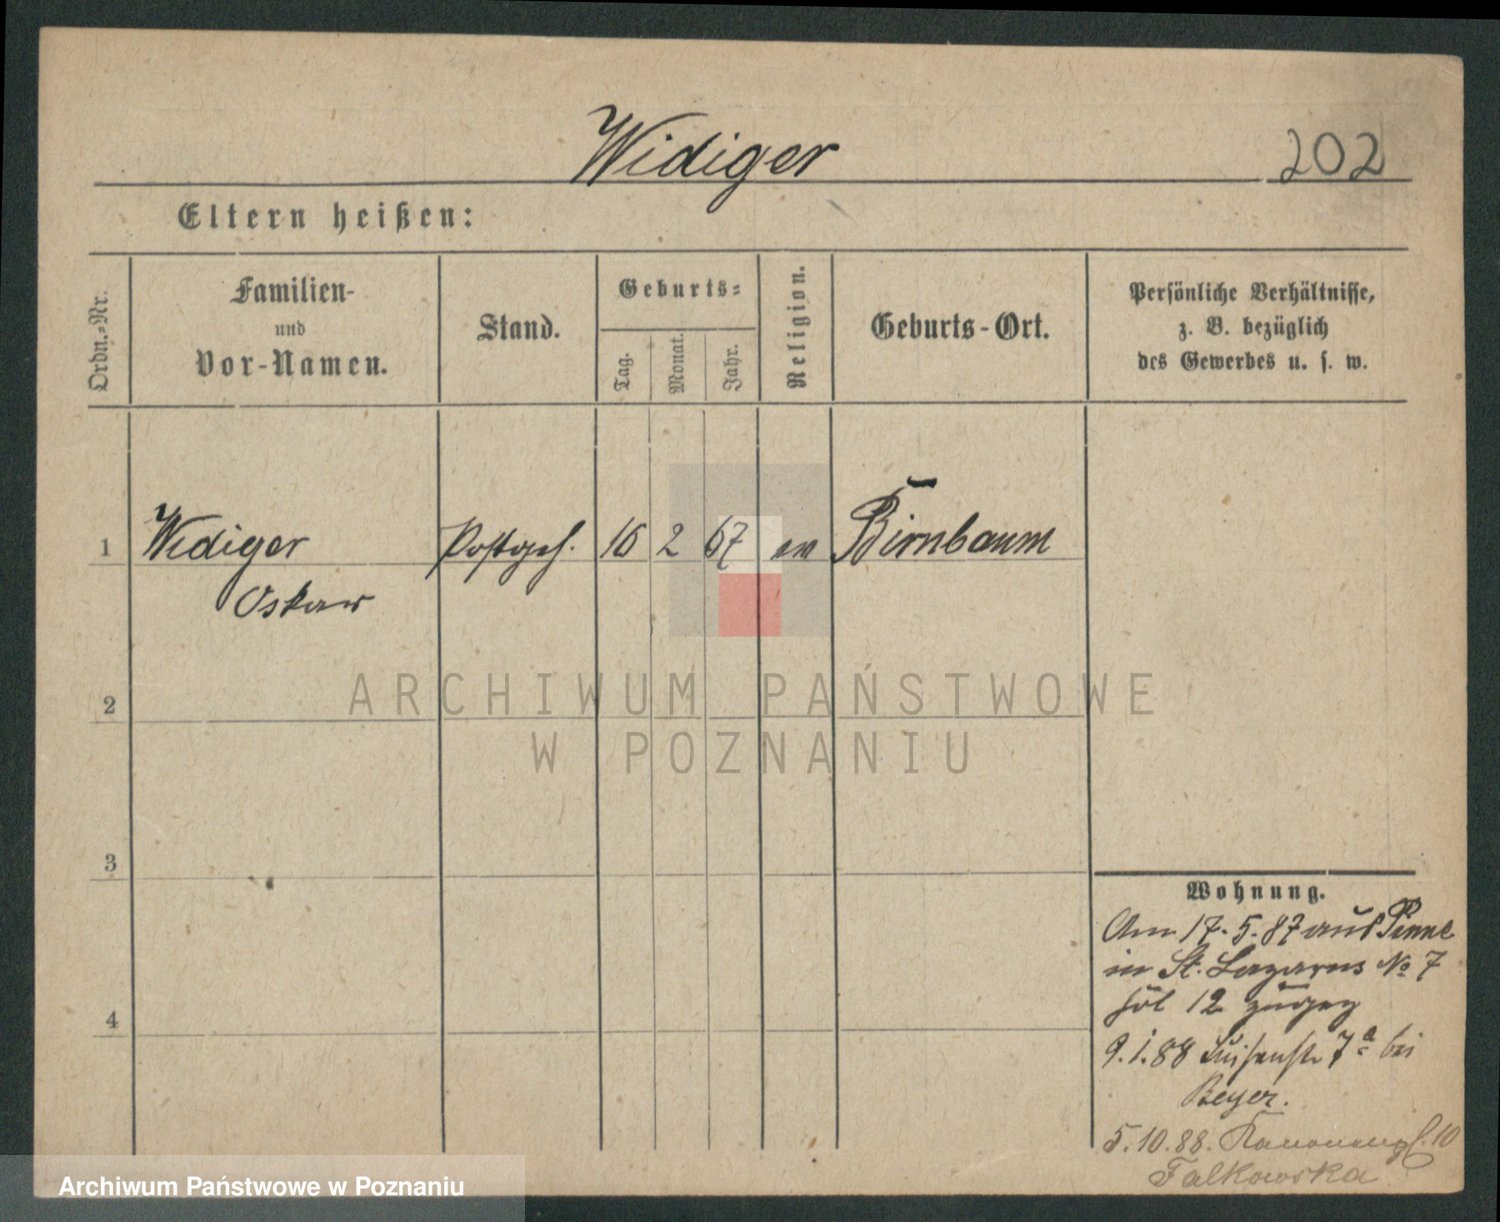 Widiger 202
Eltern heißen:
Ordn.-Nr. Familien- und Vor-Namen. Stand. Geburts- Tag. Monat. Jahr. Religion. Geburts-Ort. Persönliche Verhältnisse, z. B. bezüglich des Gewerbes u. s. w.
1 Widiger Postgeh. 16 2 67 ev Birnbaum
Oskar
2
3
4
Wohnung.
Am 17.5.87 aus Pinne
in St. Lazarus No 7
12 zugez
9.1.88 Luisenstr 7a bei
Beyer.
5.10.88. Kanonenpl. 10
Falkowska
ARCHIWUM PAŃSTWOWE
W POZNANIU
Archiwum Państwowe w Poznaniu